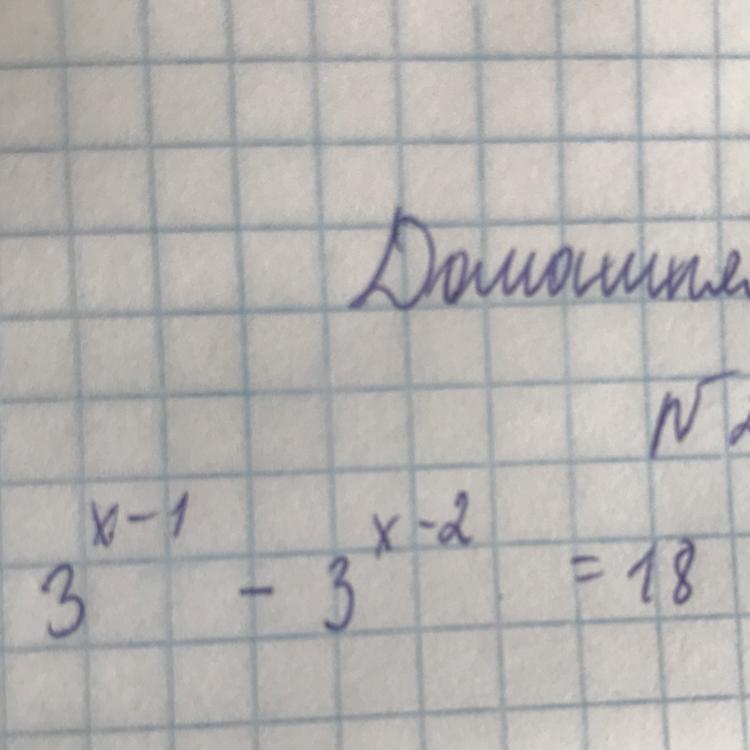 Домашня
N 2
3^{x-1} - 3^{x-2} = 18